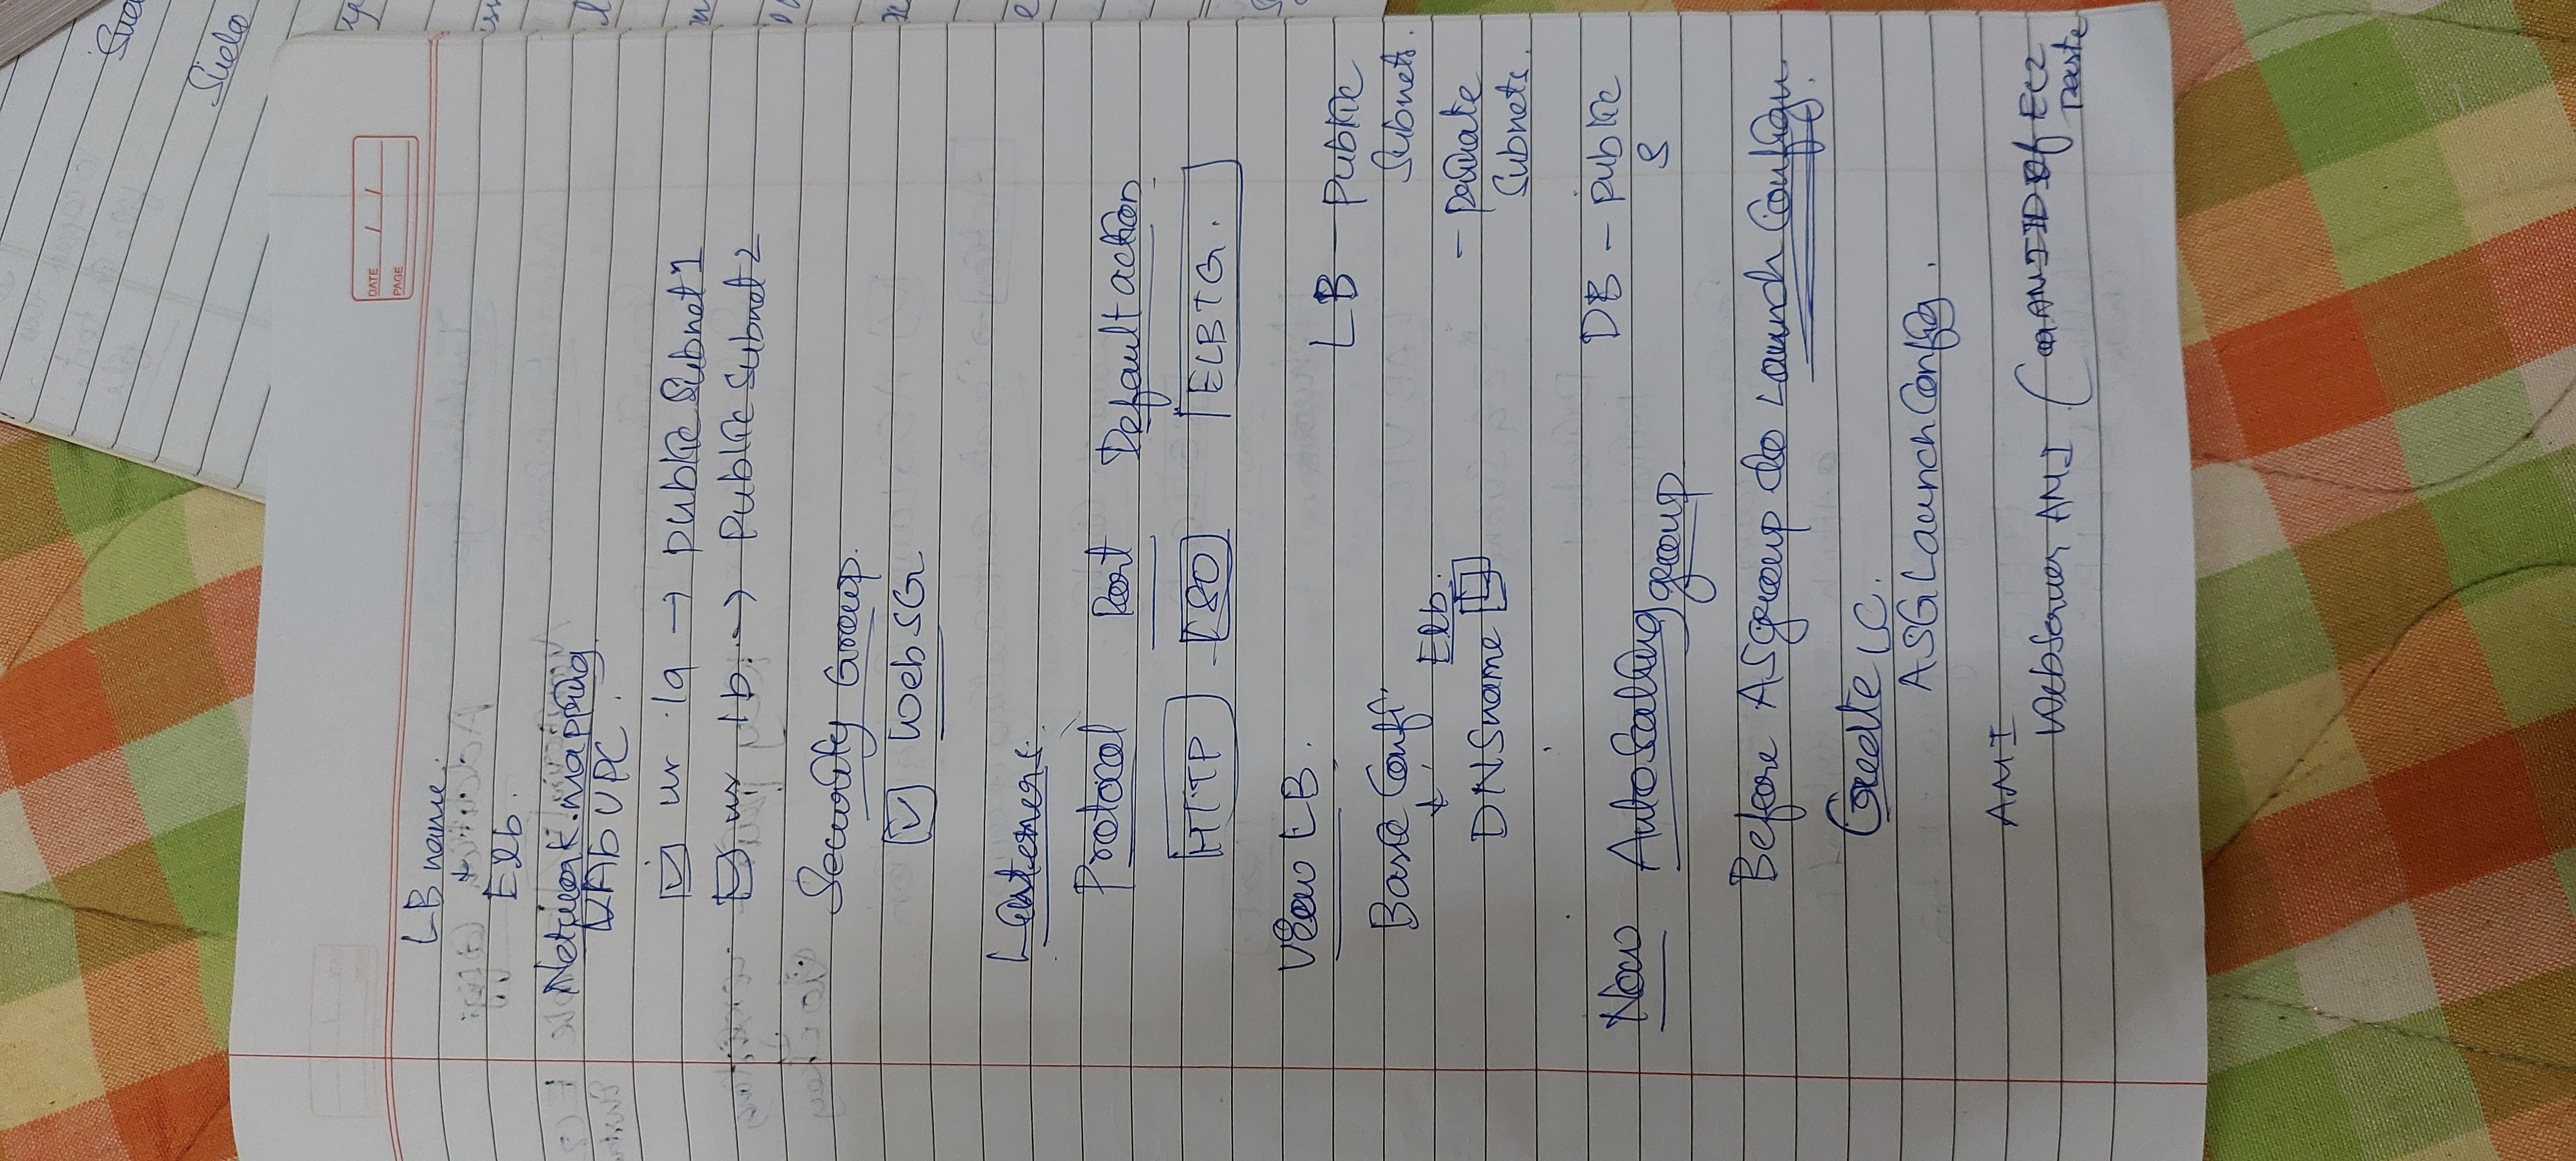 Sudo
DATE / /
PAGE
LB name.
↓
Elb.
Network mapping
LAb VPC.
☑ us 1a → public Subnet 1
☑ us 1b → Public Subnet 2
Security Group.
☑ WebSG
Listeners.
Protocol Port Default action
HTTP 80 ELBTG.
View LB.
LB - Public
Subnets.
Basic Confi.
↓ Elb.
DNSname
- private
Subnets.
DB - public
S
Now Auto Scalling group
Before ASgroup do Launch Configu.
Create LC.
ASGLaunchConfig.
AMI
WebServer AMI ( AMI ID of EC2
paste